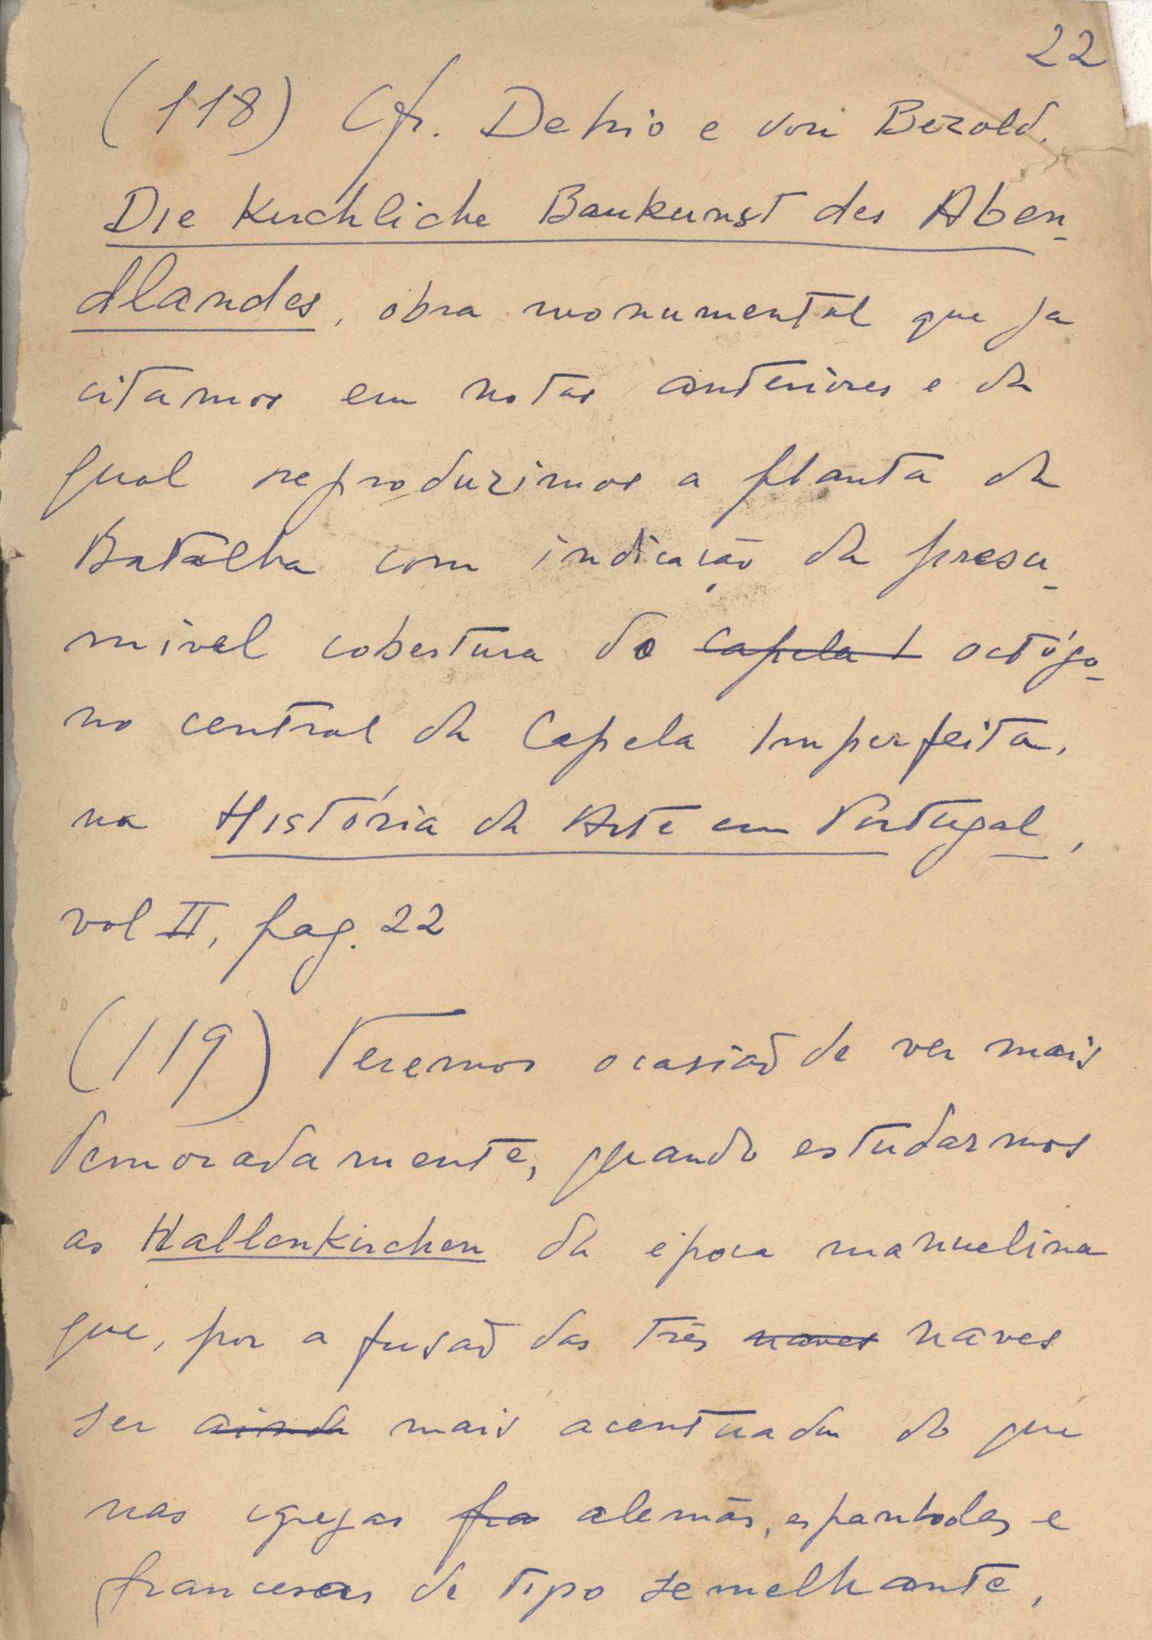 22
(118) Cfr. Dehio e von Bezold.
Die Kirchliche Baukunst des Aben-
dlandes, obra monumental que ja
citamos em notas anteriores e da
qual reproduzimos a planta da
Batalha com indicação da presu-
mivel cobertura do capela I octógo-
no central da Capela Imperfeita,
na História da Arte em Portugal,
vol II, pag. 22
(119) Teremos ocasião de ver mais
demoradamente, quando estudarmos
as Hallenkirchen da epoca manuelina
que, por a fusão das três naves naves
ser ainda mais acentuada do que
nas igrejas fra alemãs, espanholas e
francesas de tipo semelhante,